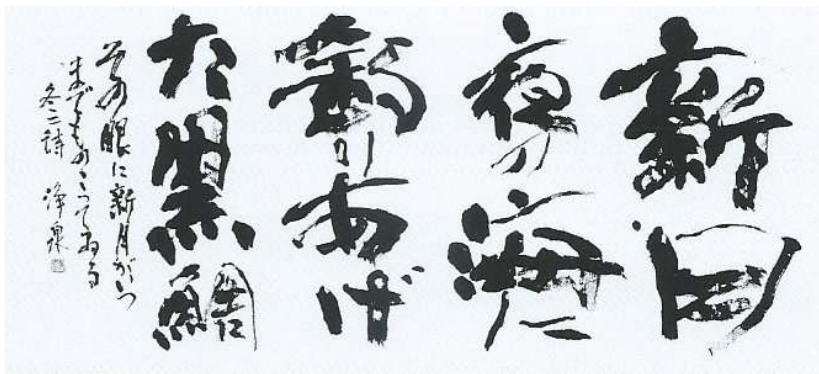 新月
夜の海に
釣りあげ
た黒鯛
その眼に新月がいつ
までものこつてゐる
冬二詩 浄泉